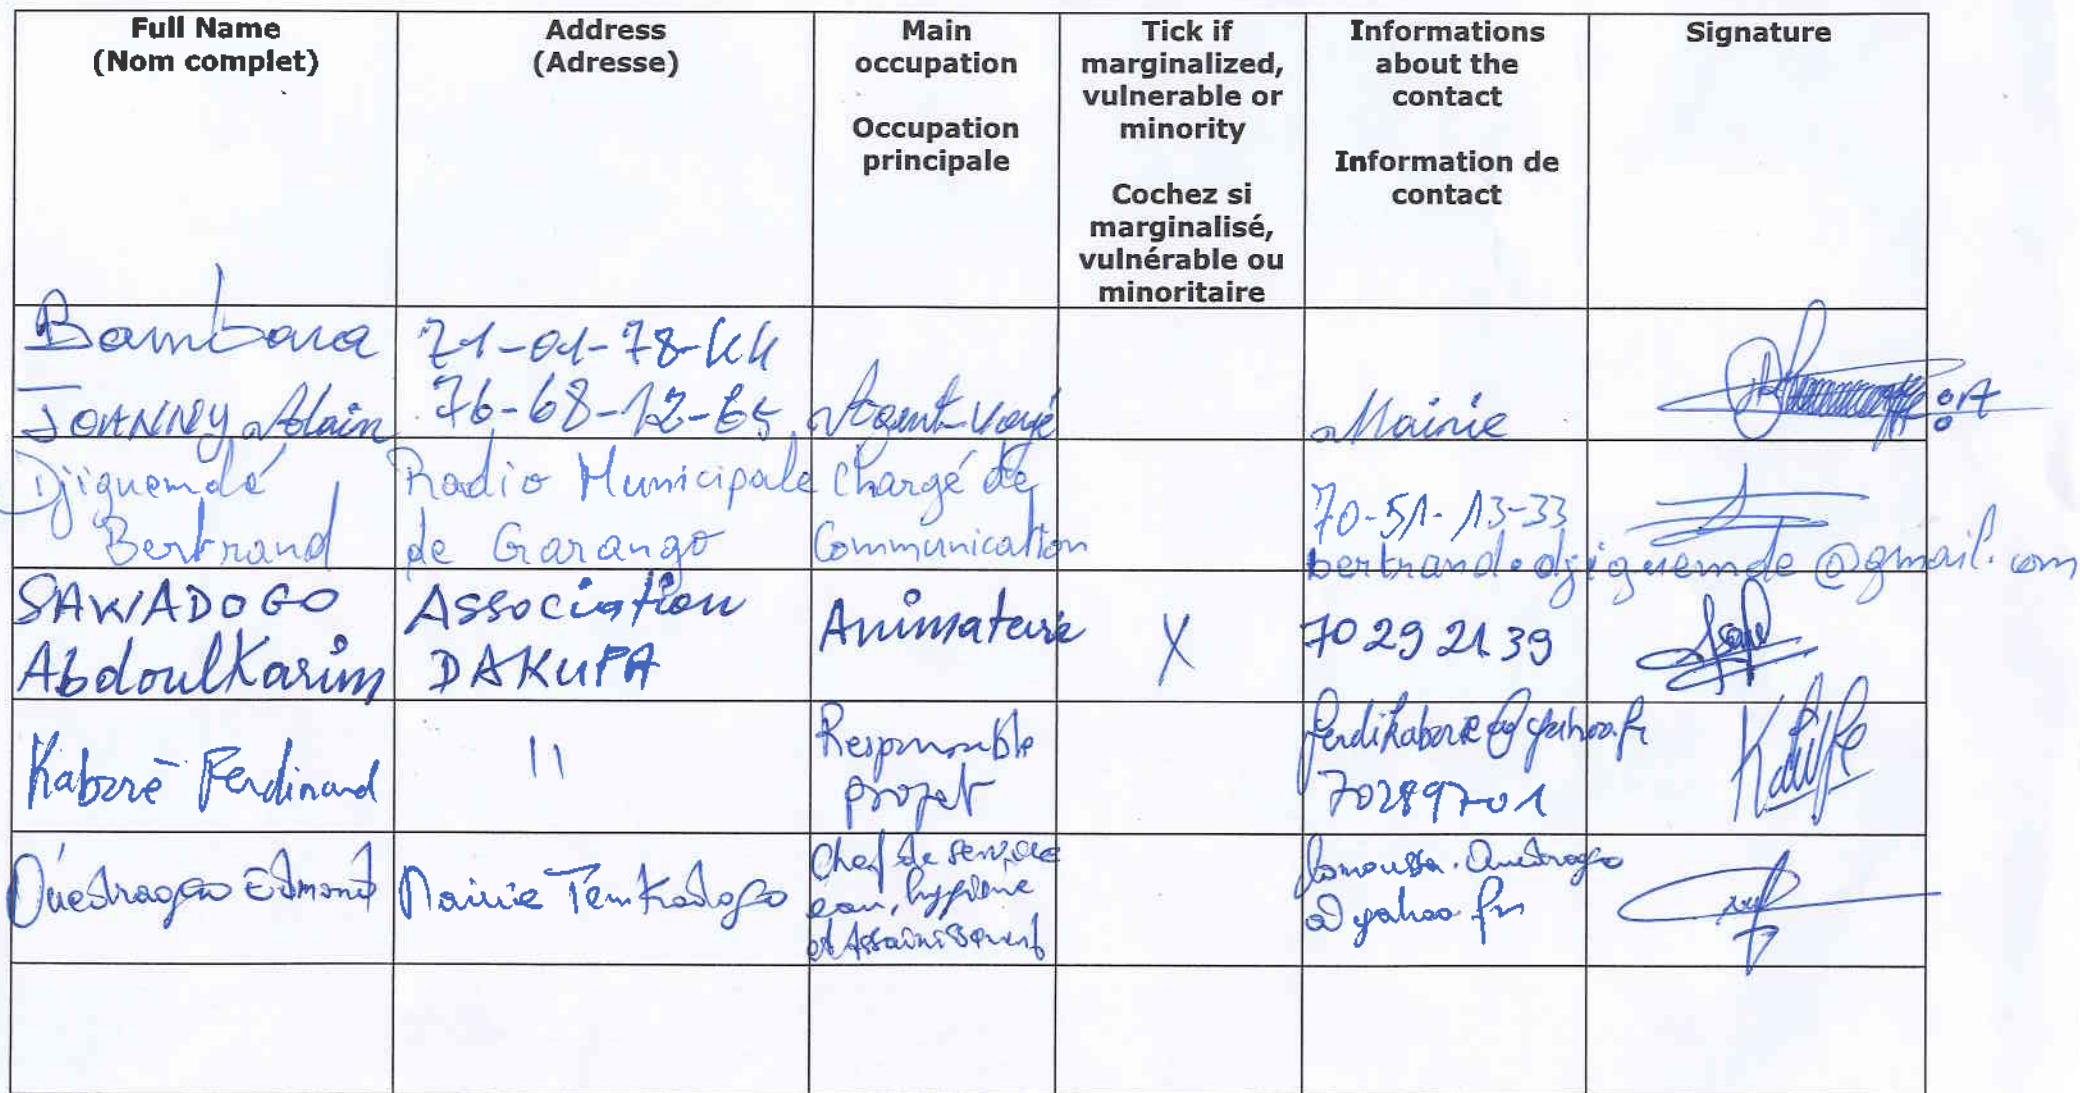 Full Name
(Nom complet)
Address
(Adresse)
Main
occupation
Occupation
principale
Tick if
marginalized,
vulnerable or
minority
Cochez si
marginalisé,
vulnérable ou
minoritaire
Informations
about the
contact
Information de
contact
Signature
Bambara
JOANNY Alain
71-01-78-44
76-68-12-65
Agent voyé
Mairie
Djiguemdé
Bertrand
Radio Municipale
de Garango
Chargé de
Communication
70-51-13-33
bertrand.djiguemde@gmail.com
SAWADOGO
AbdoulKarim
Association
DAKUPA
Animateur
X
70 29 21 39
Kaboré Ferdinand
11
Responsable
projet
ferdikabore@yahoo.fr
70289701
Ouédraogo Edmond
Mairie Tenkodogo
Chef de service
eau, hygiène
et Assainissement
@yahoo.fr